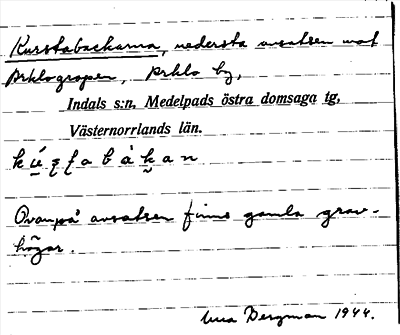 Kurstabackarna, nedersta avsatsen mot
Arklogropen, Arklo by,
Indals s:n. Medelpads östra domsaga tg,
Västernorrlands län.
Ovanpå avsatsen finns gamla grav-
högar.
Bergman 1944.